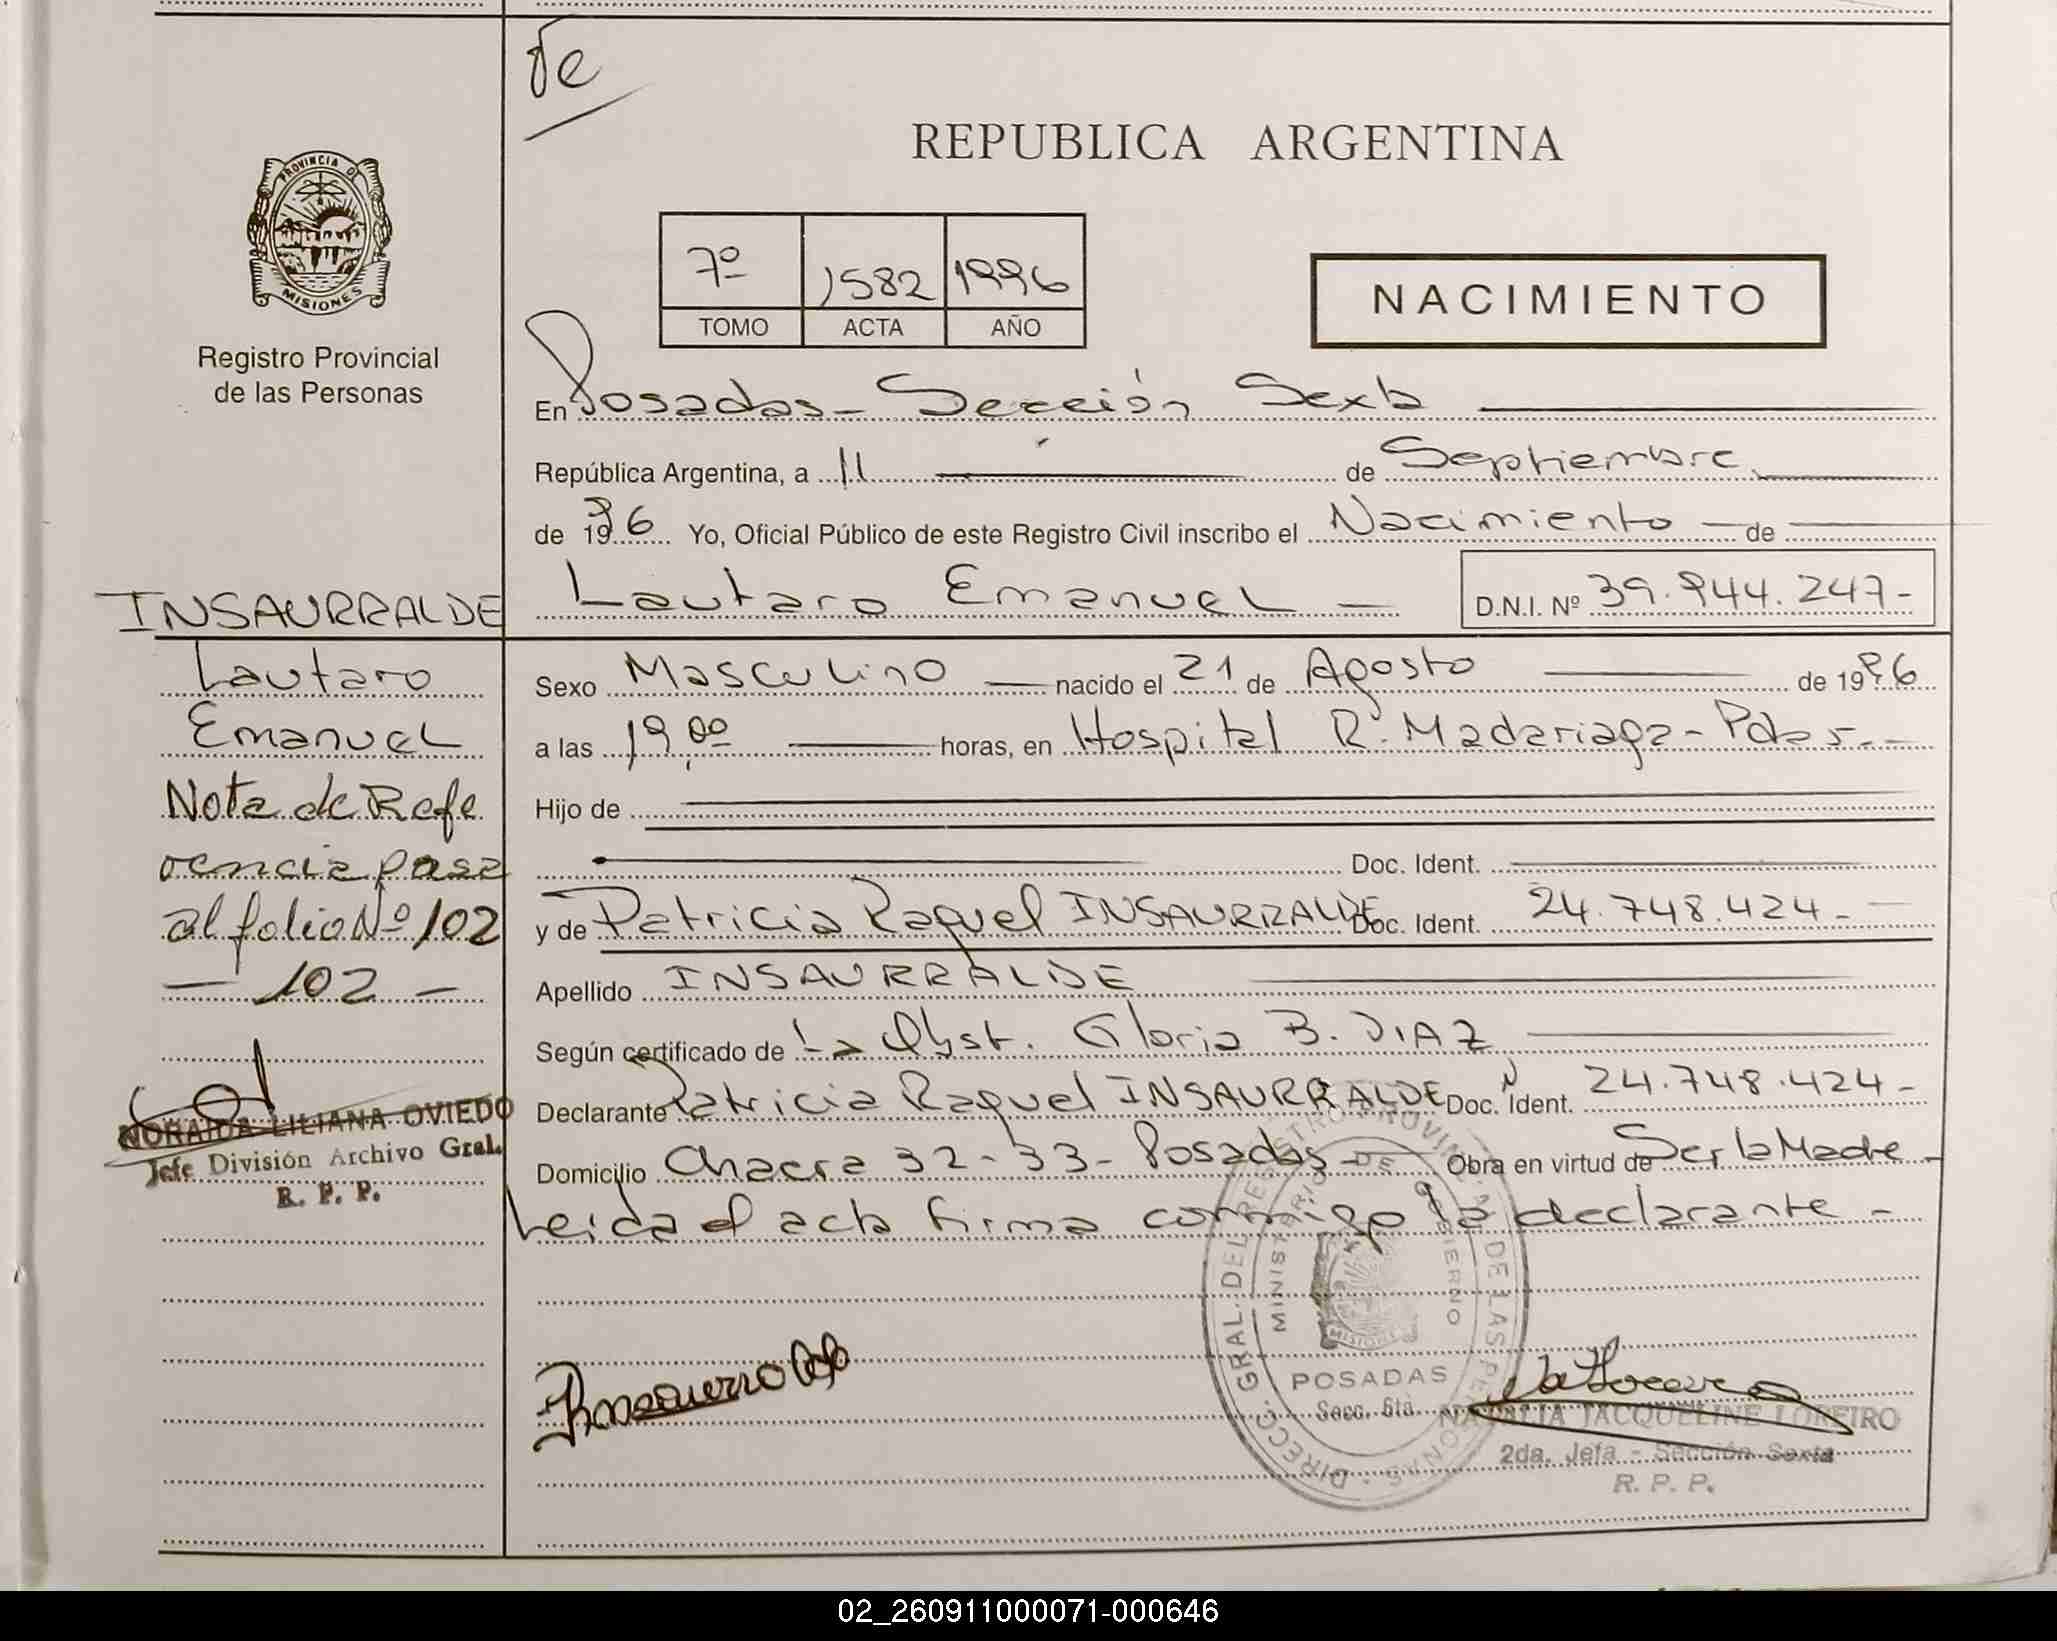 Te
REPUBLICA ARGENTINA
PROVINCIA DE
MISIONES
Registro Provincial
de las Personas
7º 1582 1996
TOMO ACTA AÑO
NACIMIENTO
En Posadas - Sección Sexta
República Argentina, a 11 de Septiembre
de 1996 Yo, Oficial Público de este Registro Civil inscribo el Nacimiento de
Lautaro Emanuel - D.N.I. Nº 39.944.247-
INSAURRALDE
Lautaro
Emanuel
Nota de Refe
rencia pasa
al folio Nº 102
- 102 -
NORAIDA LILIANA OVIEDO
Jefe División Archivo Gral.
R. P. P.
Sexo Masculino nacido el 21 de Agosto de 1996
a las 19,00 horas, en Hospital R. Madariaga - Pdas.-
Hijo de
Doc. Ident.
y de Patricia Raquel INSAURRALDE Doc. Ident. 24.748.424.-
Apellido INSAURRALDE
Según certificado de La Obst. Gloria B. DIAZ
Declarante Patricia Raquel INSAURRALDE Doc. Ident. 24.748.424-
Domicilio Chacra 32-33- Posadas- Obra en virtud de Ser la Madre-
Leida el acta firma conmigo la declarante -
DIRECC. GRAL. DEL REGISTRO PROVINCIAL DE LAS PERSONAS
MINISTERIO DE GOBIERNO
MISIONES
POSADAS
Secc. 6ta
NATALIA JACQUELINE LOREIRO
2da. Jefa - Sección Sexta
R. P. P.
02_260911000071-000646